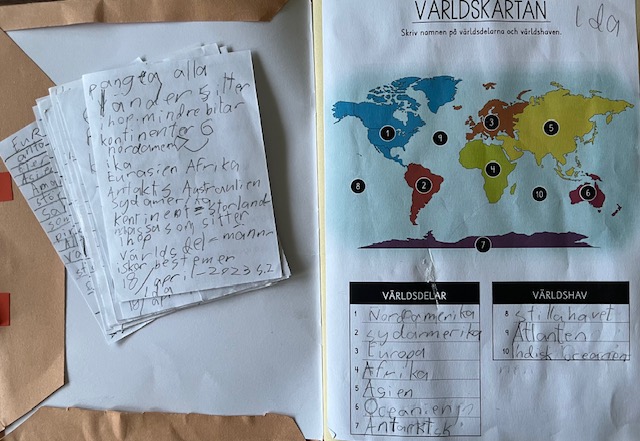 pangea alla
länder sitter
ihop mindre bitar
kontinenter 6
nordamer
ika
Eurasien Afrika
Antakts Australien
Sydamerika
kontinent = storland
massa som sitter
ihop
världsdel = männ
iskor bestemer
18/april-2023 s.2
VÄRLDSKARTAN
ida
Skriv namnen på världsdelarna och världshaven.
1
2
3
4
5
6
7
8
9
10
VÄRLDSDELAR
1 Nordamerika
2 sydarmerika
3 Europa
4 Afrika
5 Asien
6 Oceanien
7 Antarktek
VÄRLDSHAV
8 stillahavet
9 Atlanten
10 Indisk oceanen